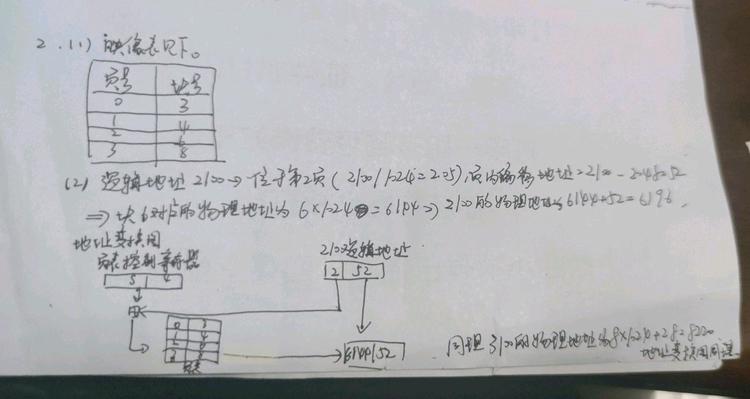 2.(1) 映像表见下。
页号 块号
0 3
1 4
2 6
3 8
(2) 逻辑地址2100→位于第2页(2100/1024=2.05)页内偏移地址=2100-2048=52
⇒块6对应的物理地址为6×1024=6144⇒2100的物理地址为6144+52=6196.
地址变换图
页表控制寄存器
2100逻辑地址
5 4
2 52
0 3
1 4
2 6
3 8
页表
6144 52
同理3100的物理地址为8×1024+28=8220
地址变换图同理